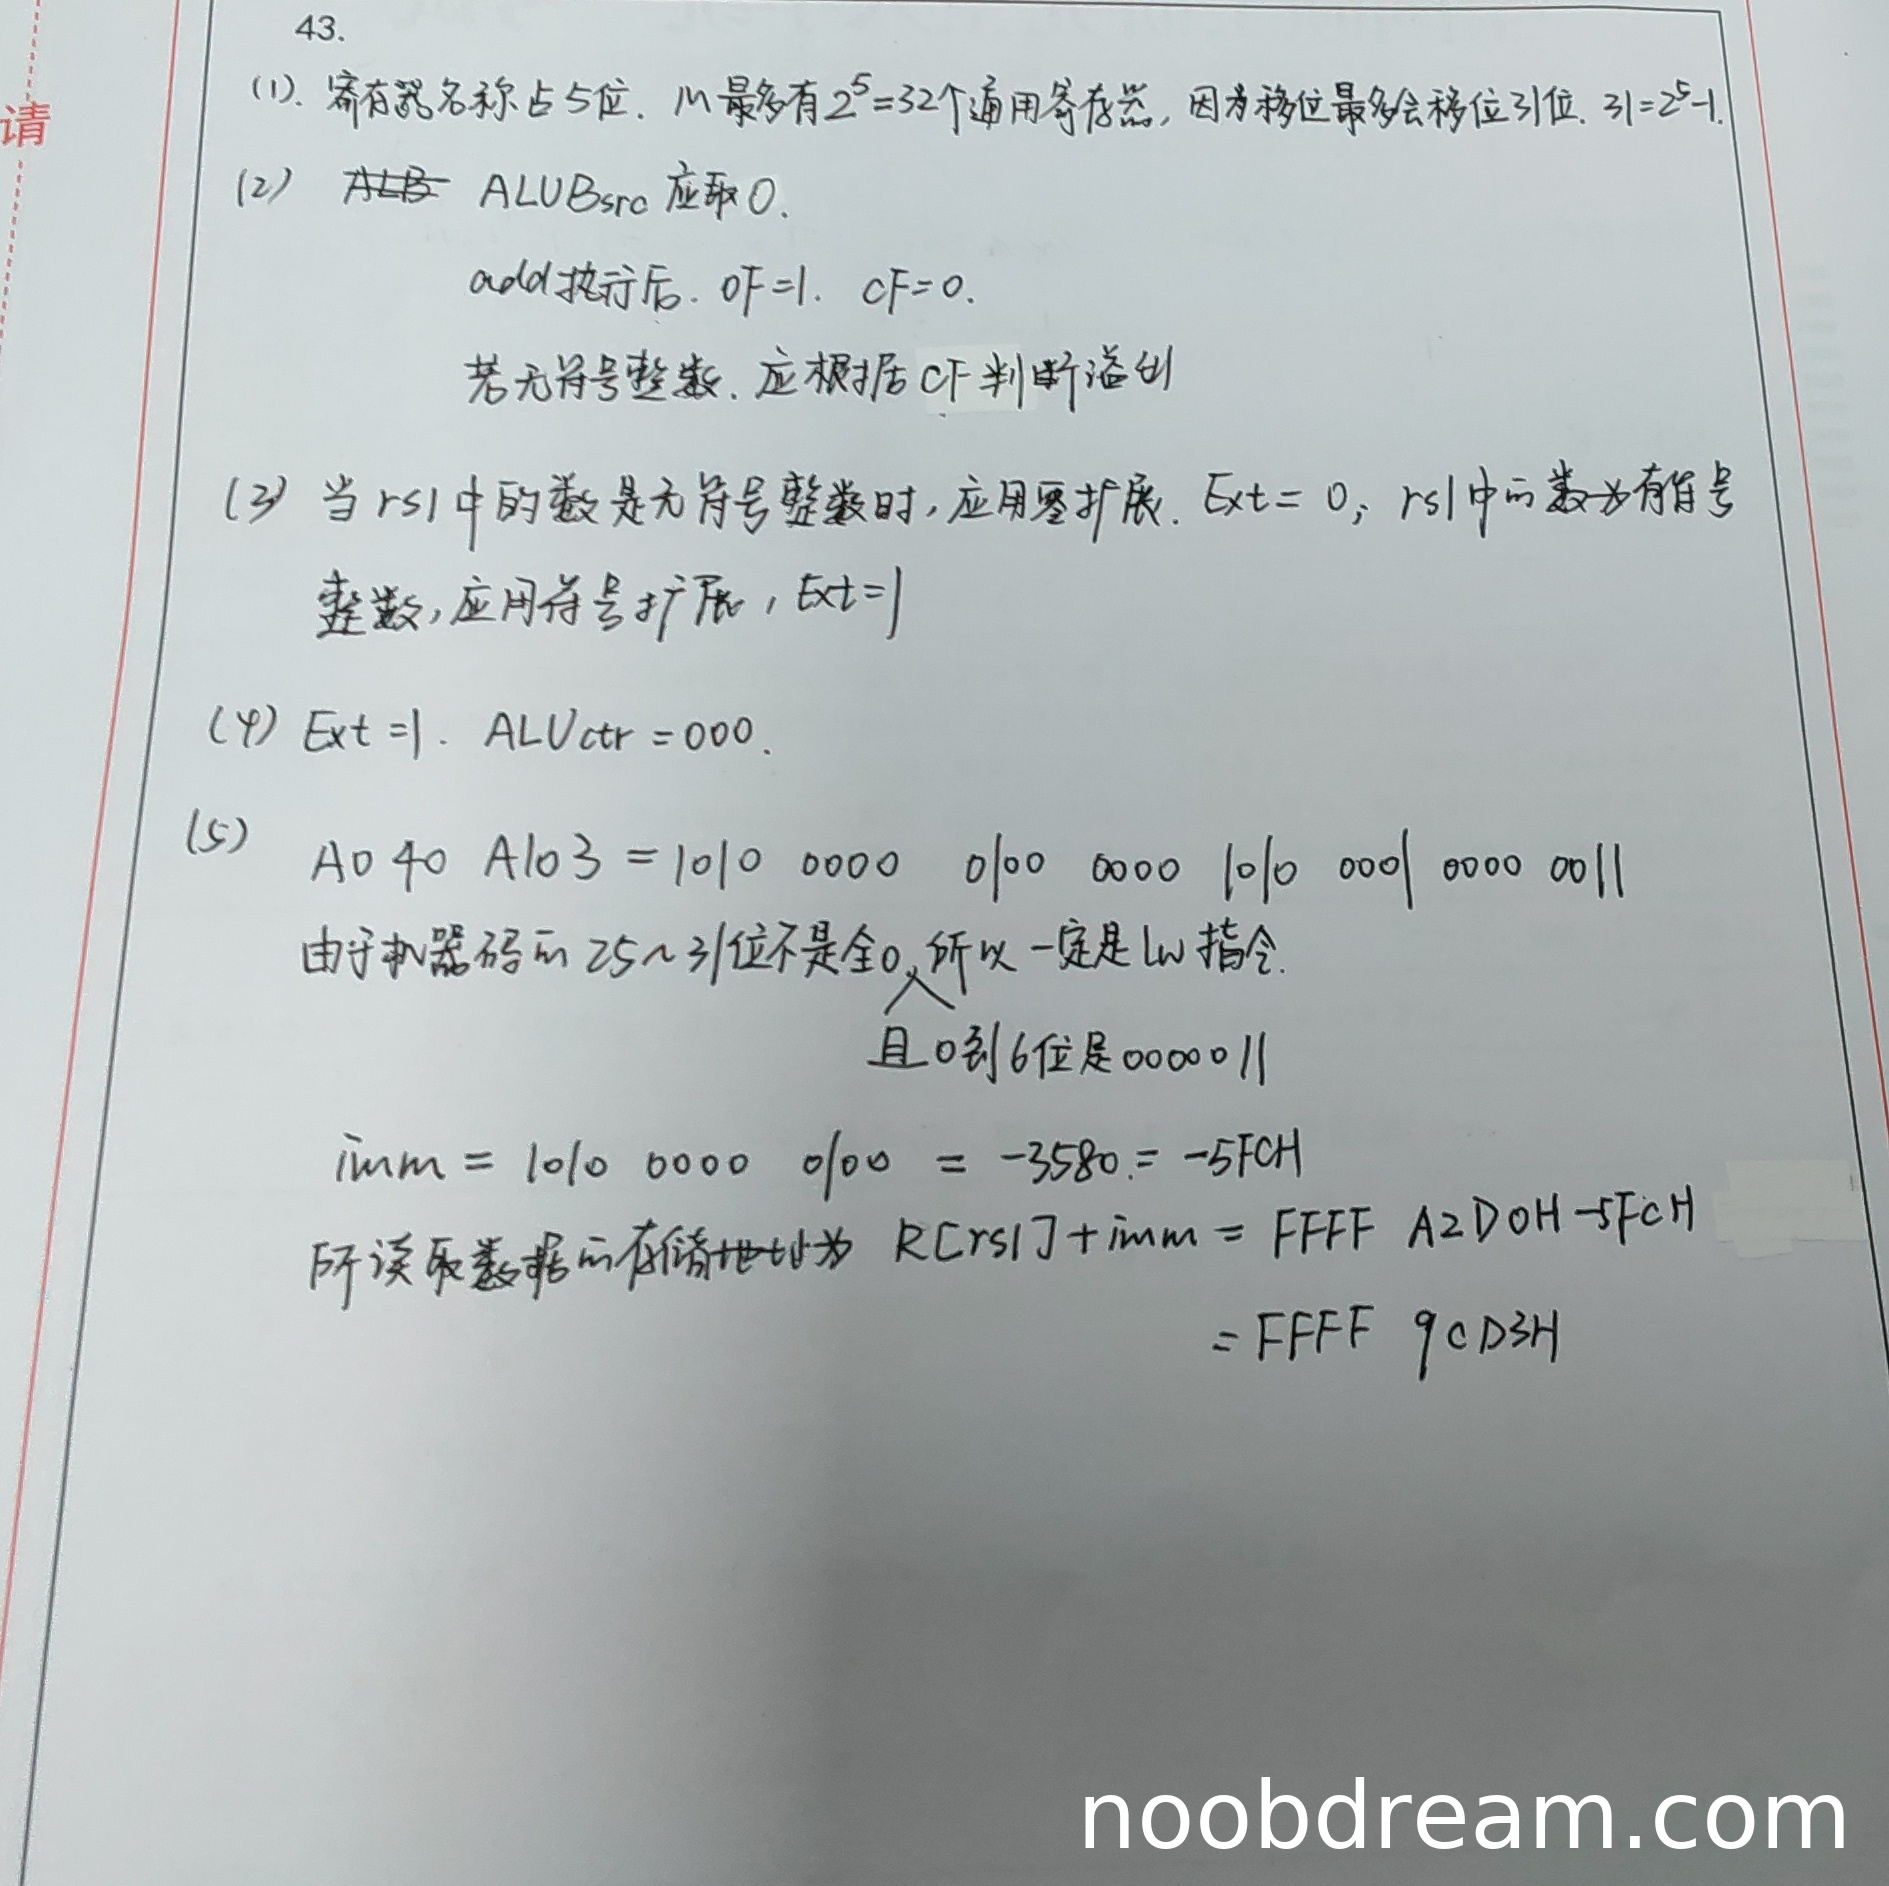 43.
请
(1). 寄存器名称占5位. M最多有2⁵=32个通用寄存器, 因为移位最多会移位31位. 31=2⁵-1.
(2) ALB ALUBsrc 应取0.
add执行后. OF=1. CF=0.
若无符号整数. 应根据CF判断溢出
(3) 当rs1中的数是无符号整数时, 应用零扩展. Ext=0; rs1中的数为有符号
整数, 应用符号扩展, Ext=1
(4) Ext=1. ALUctr=000.
(5) A040 A103 = 1010 0000 0100 0000 1010 0001 0000 0011
由于机器码的25~31位不是全0, 所以一定是lw指令.
且0到6位是0000011
imm = 1010 0000 0100 = -3580. = -5FCH
所读取数据的存储地址为 R[rs1]+imm = FFFF A2D0H-5FCH
= FFFF 9CD3H
noobdream.com